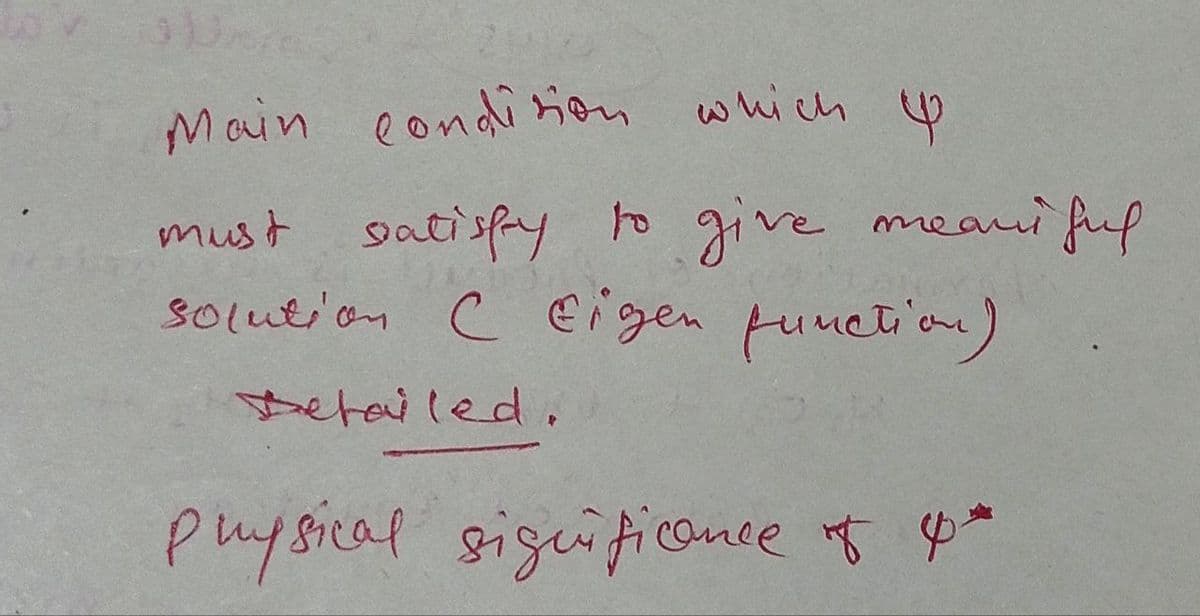 Main condition which ψ
must satisfy to give meaniful
solution ( Eigen function)
Detailed.
Physical significance of ψ*